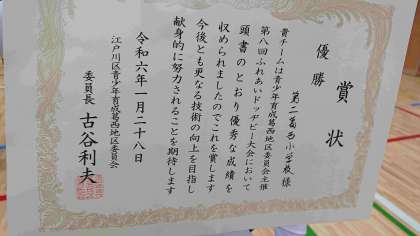 賞状
優勝
第二葛西小学校様
貴チームは青少年育成葛西地区委員会主催
第八回ふれあいドッヂビー大会において
頭書のとおり優秀な成績を
収められましたのでこれを賞します
今後とも更なる技術の向上を目指し
献身的に努力されることを期待します
令和六年一月二十八日
江戸川区青少年育成葛西地区委員会
委員長 古谷利夫